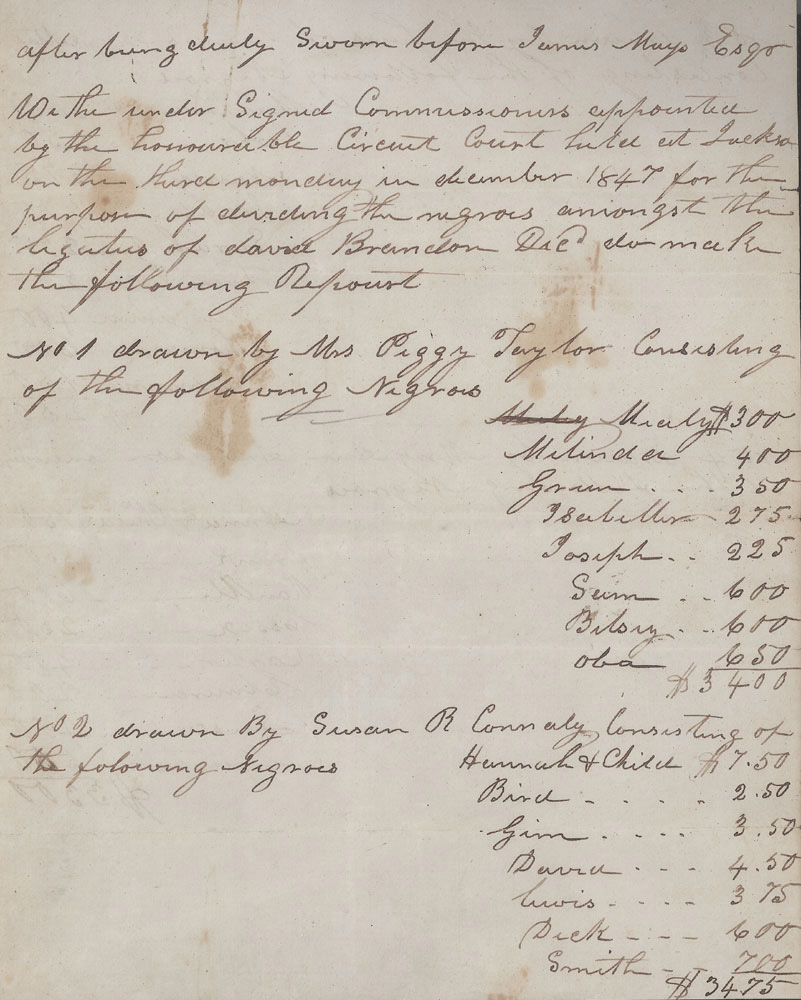 after being duly Sworn before James Mays Esqr
We the under Signed Commissioners appointed
by the honourable Circuit Court held at Jackso
on the third monday in december 1847 for the
purpose of dividing the negroes amongst the
legatees of david Brandon Decd do make
the following Repourt
No 1 drawn by Mrs Piggy Taylor Consisting
of the following Negroes
Mealy $300
Milinda 400
Green . . . 350
Isabella 275
Joseph . . 225
. . 600
Betsey . . 600
oba 650
$3400
No 2 drawn By Susan R Connaly Consisting of
the folowing Negroes Hannah & Child $7.50
Bird - . . . 2.50
Gim - . . . 3.50
David - . . . 4.50
lewis - - . . 3 75
Dick - - - 600
Smith - - 700
$3475